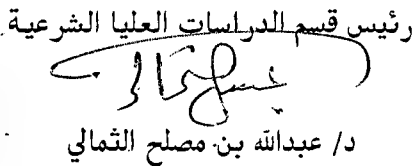 رئيس قسم الدراسات العليا الشرعية
د/ عبدالله بن مصلح الثمالي